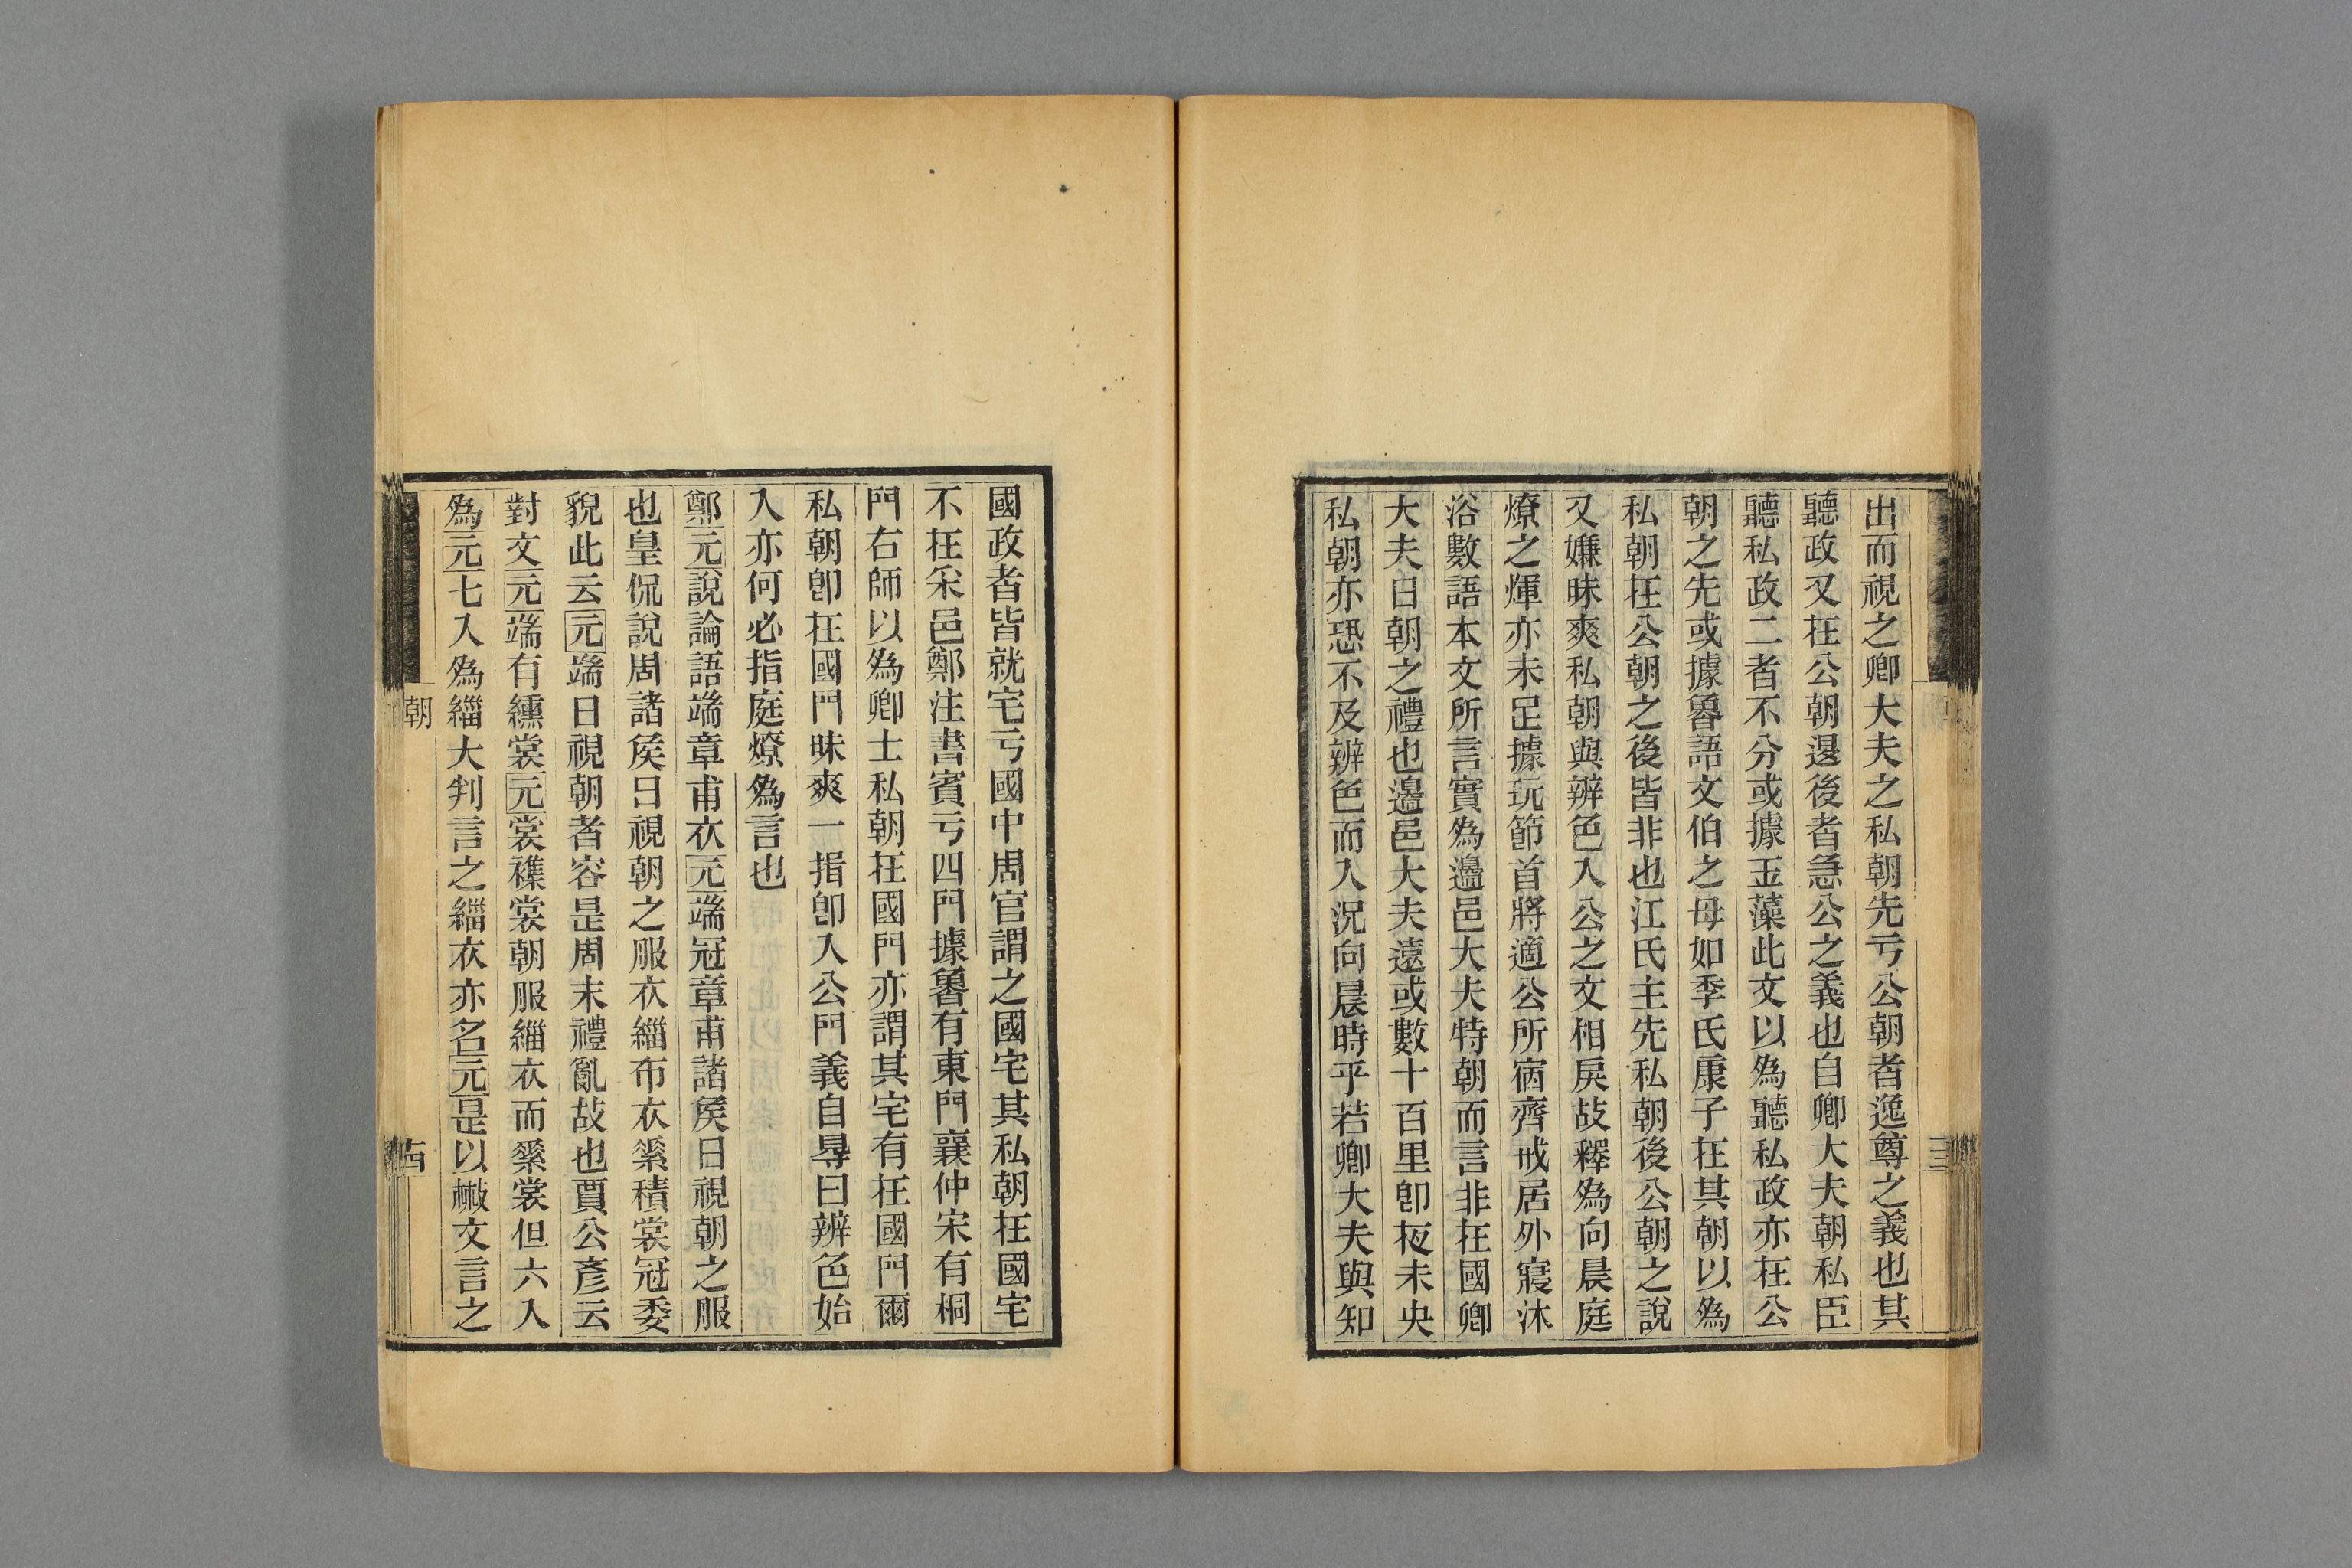 出而視之卿大夫之私朝先亏公朝者逸尊之義也其
聽政又在公朝退後者急公之義也自卿大夫朝私臣
聽私政二者不分或據玉藻此文以爲聽私政亦在公
朝之先或據魯語文伯之母如季氏康子在其朝以爲
私朝在公朝之後皆非也江氏主先私朝後公朝之說
又嫌昧爽私朝與辨色入公之文相戾故釋爲向晨庭
燎之煇亦未足據玩節首將適公所宿齊戒居外寢沐
浴數語本文所言實爲邊邑大夫特朝而言非在國卿
大夫日朝之禮也邊邑大夫遠或數十百里卽夜未央
私朝亦恐不及辨色而入況向晨時乎若卿大夫與知
國政者皆就宅亏國中周官謂之國宅其私朝在國宅
不在采邑鄭注書賓亏四門據魯有東門襄仲宋有桐
門右師以爲卿士私朝在國門亦謂其宅有在國門爾
私朝卽在國門昧爽一指卽入公門義自㝵曰辨色始
入亦何必指庭燎爲言也
鄭元說論語端章甫衣元端冠章甫諸矦日視朝之服
也皇侃說周諸矦日視朝之服衣緇布衣素積裳冠委
貌此云元端日視朝者容是周末禮亂故也賈公彥云
對文元端有纁裳元裳襍裳朝服緇衣而素裳但六入
爲元七入爲緇大判言之緇衣亦名元是以㪔文言之
朝
古